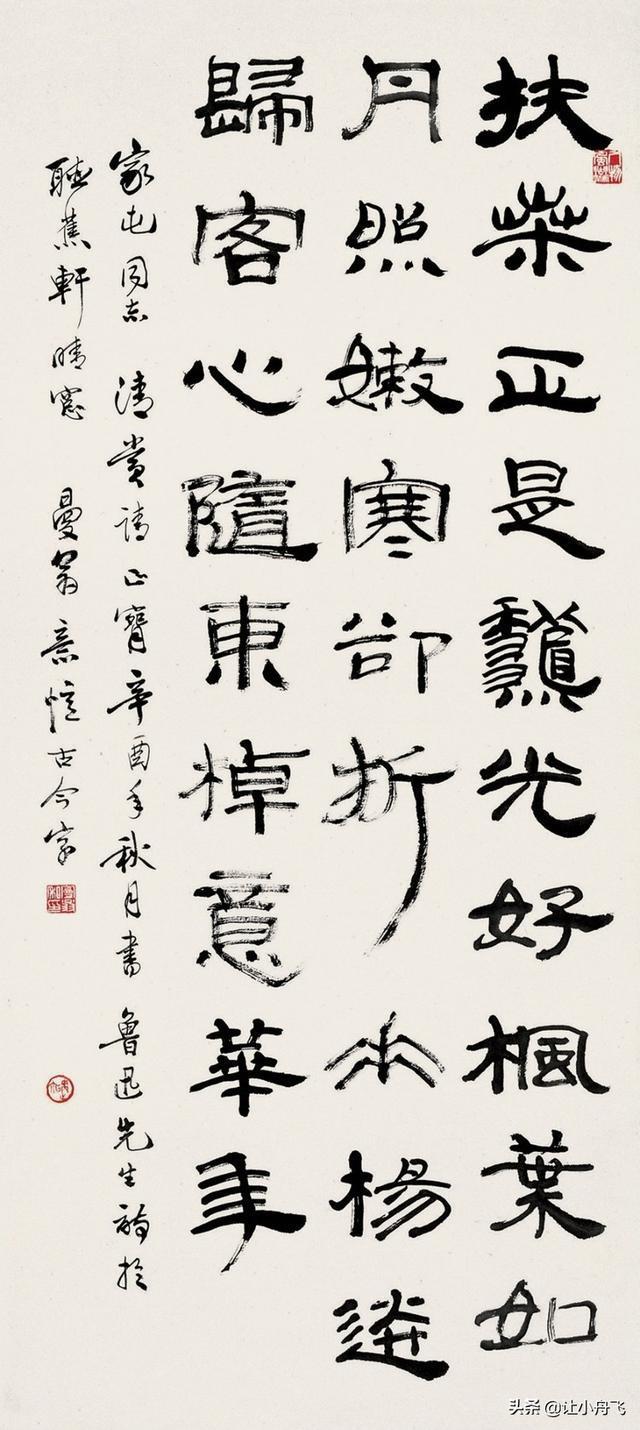 扶桒正是龝光好楓葉如
丹照嫩寒卻折垂楊送
歸客心隨東棹意華年
家屯同志 清賞請正寶辛酉年秋月書 魯迅先生詩於
聽蕉軒晴窗 曼翁 意憶古今字
头条 @让小舟飞